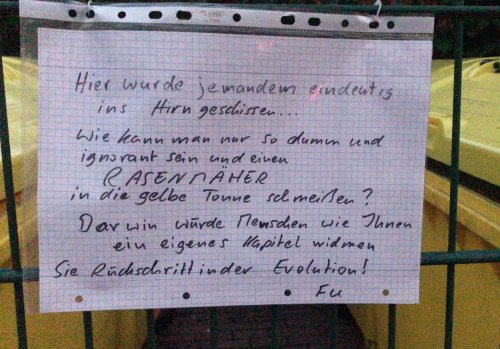 Hier wurde jemandem eindeutig
ins Hirn geschissen...
Wie kann man nur so dumm und
ignorant sein und einen
RASENMÄHER
in die gelbe Tonne schmeißen?
Darwin würde Menschen wie Ihnen
ein eigenes Kapitel widmen
Sie Rückschritt in der Evolution!
FU